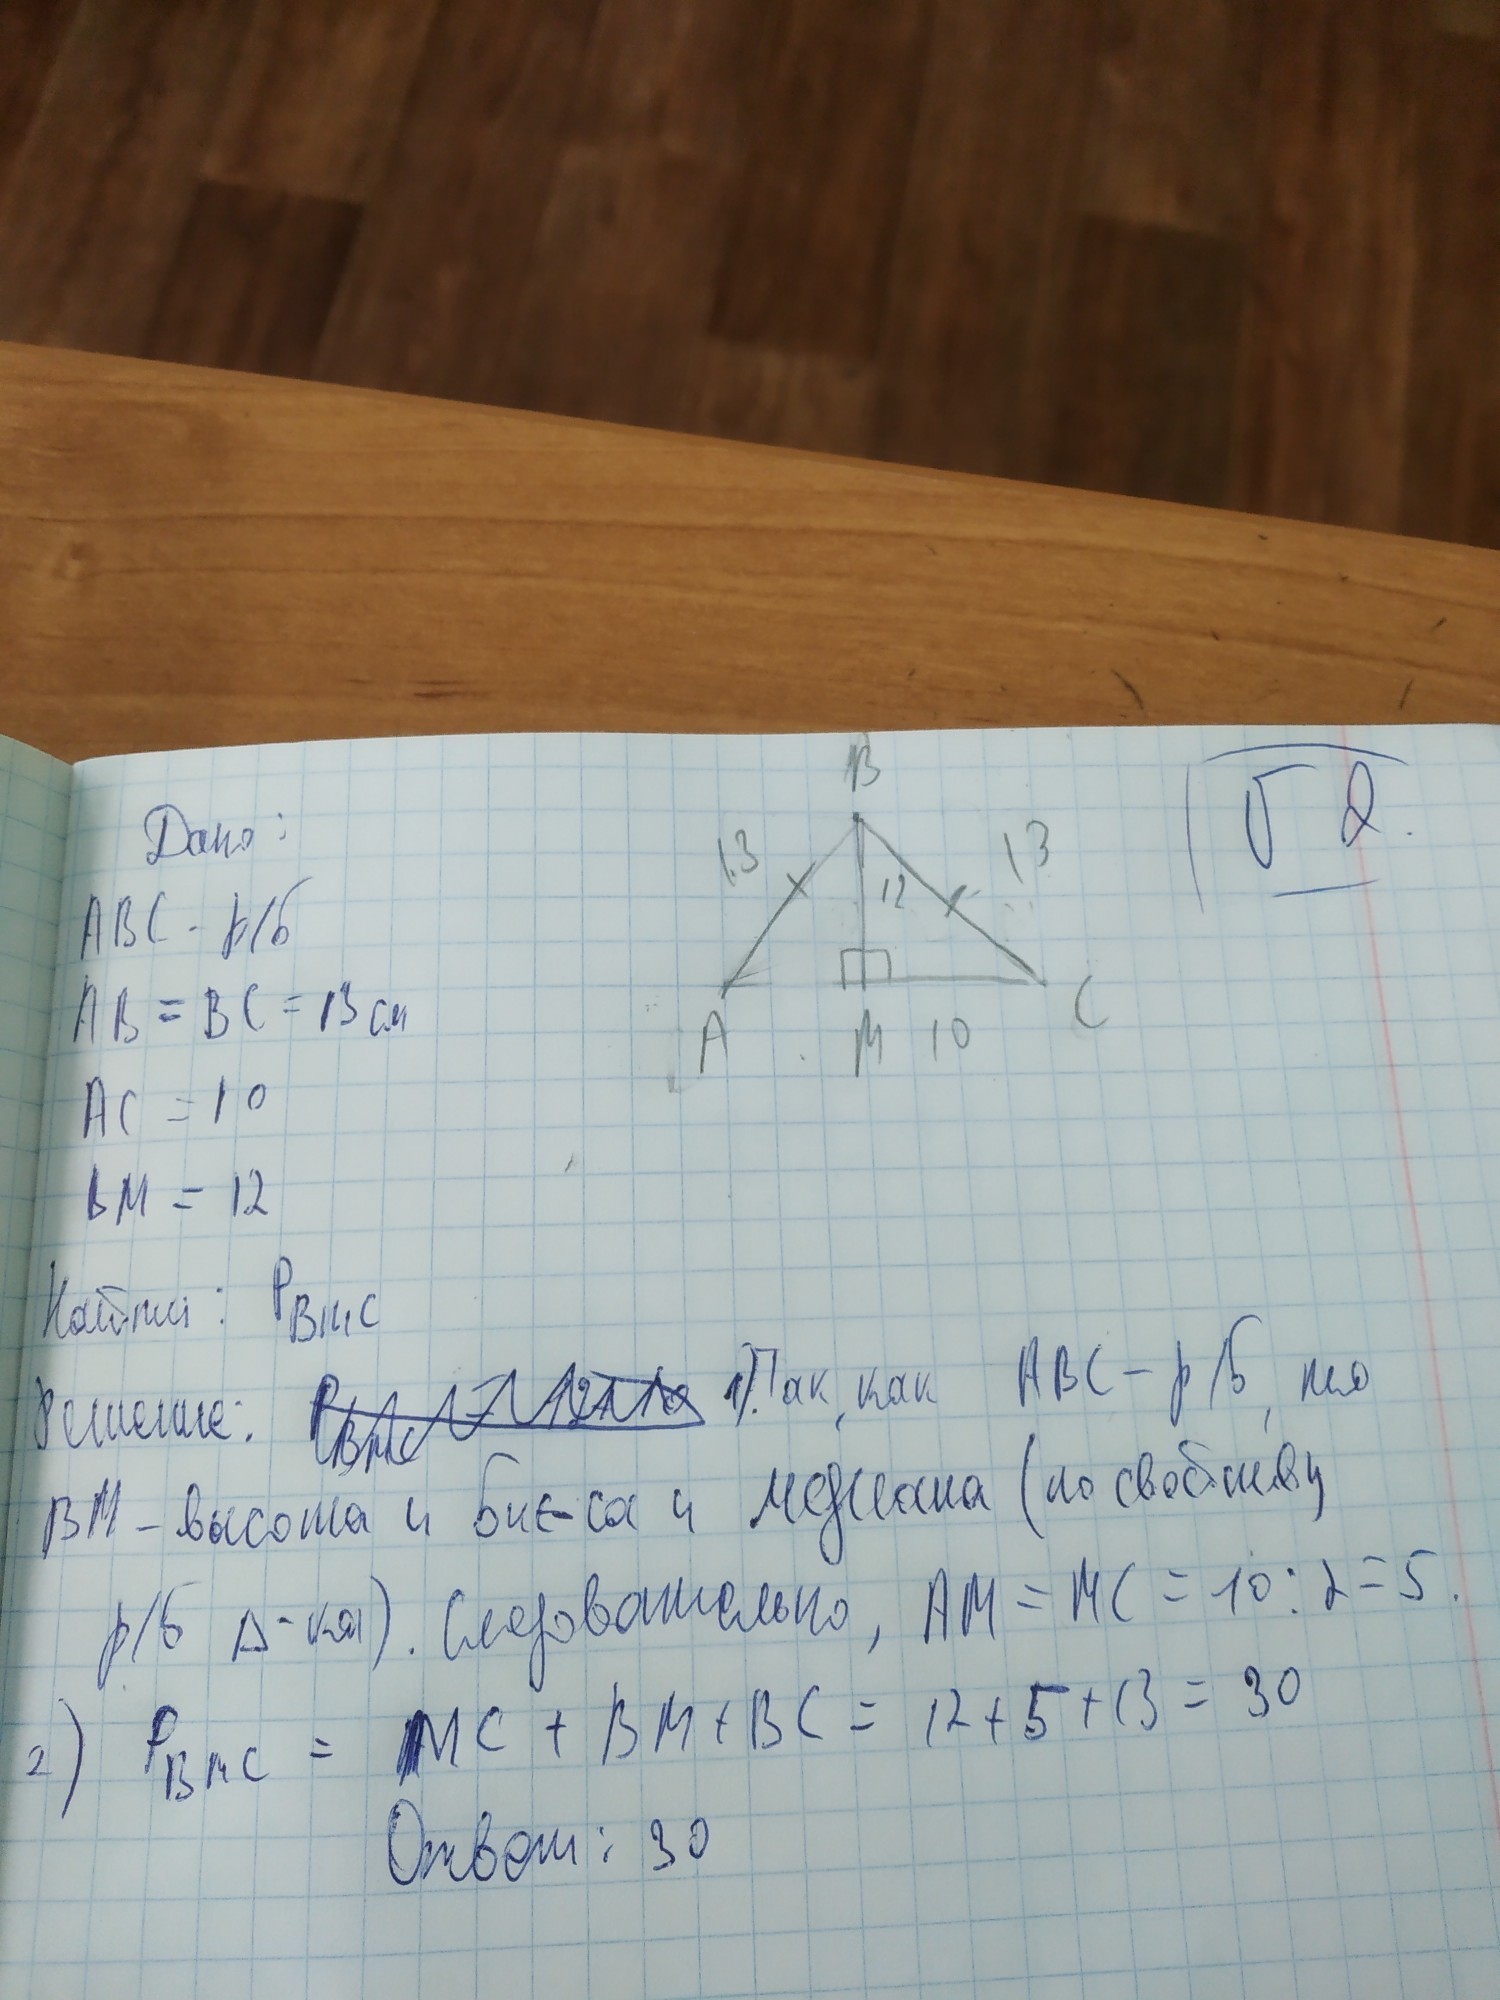 Дано:
ABC - р/б
AB = BC = 13 см
AC = 10
BM = 12
B
13
12
13
A
M
10
C
Найти: P BMC
Решение: 1) Так, как ABC - р/б, то
BM - высота и бис-са и медиана (по свойству
р/б Δ-ка). Следовательно, AM = MC = 10 : 2 = 5.
2) P BMC = MC + BM + BC = 12 + 5 + 13 = 30
Ответ: 30